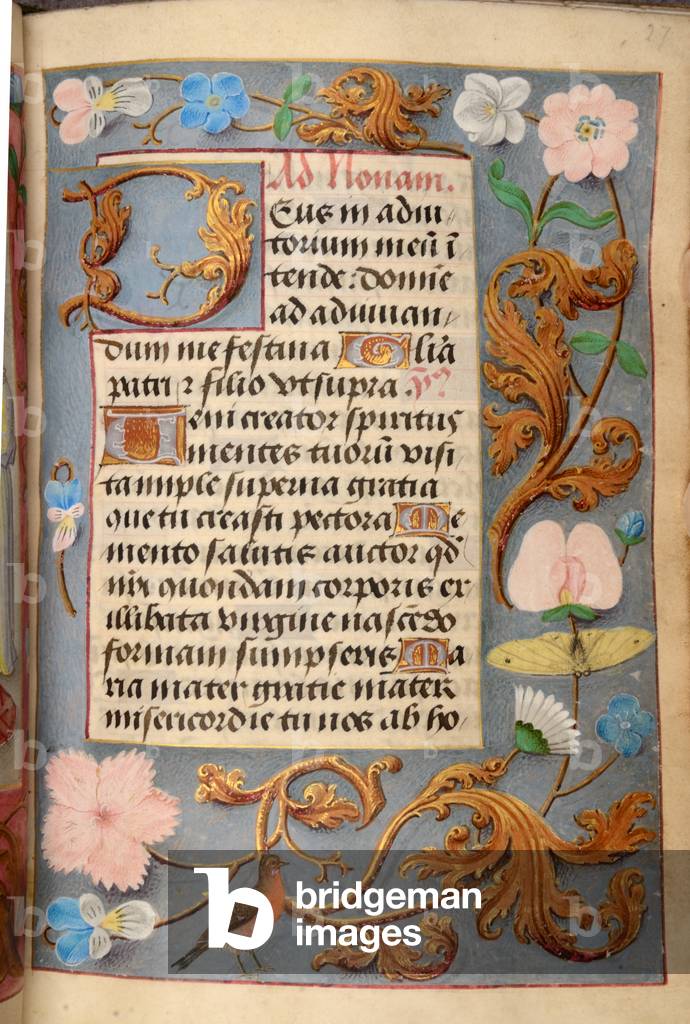 27
Ad Nonam.
Deus in adiu
torium meū ī
tende: domīe
ad adiuuan
dum me festina Glīa
patri ⁊ filio vt supra
Ueni creator spiritus
mentes tuorū visi
ta imple superna gratia
que tu creasti pectora Me
mento salutis auctor qd̄
nr̄i quondam corporis ex
illibata virgine nascēdo
formam sumpseris Ma
ria mater gratie mater
misericordie tu nos ab ho
bridgeman
images